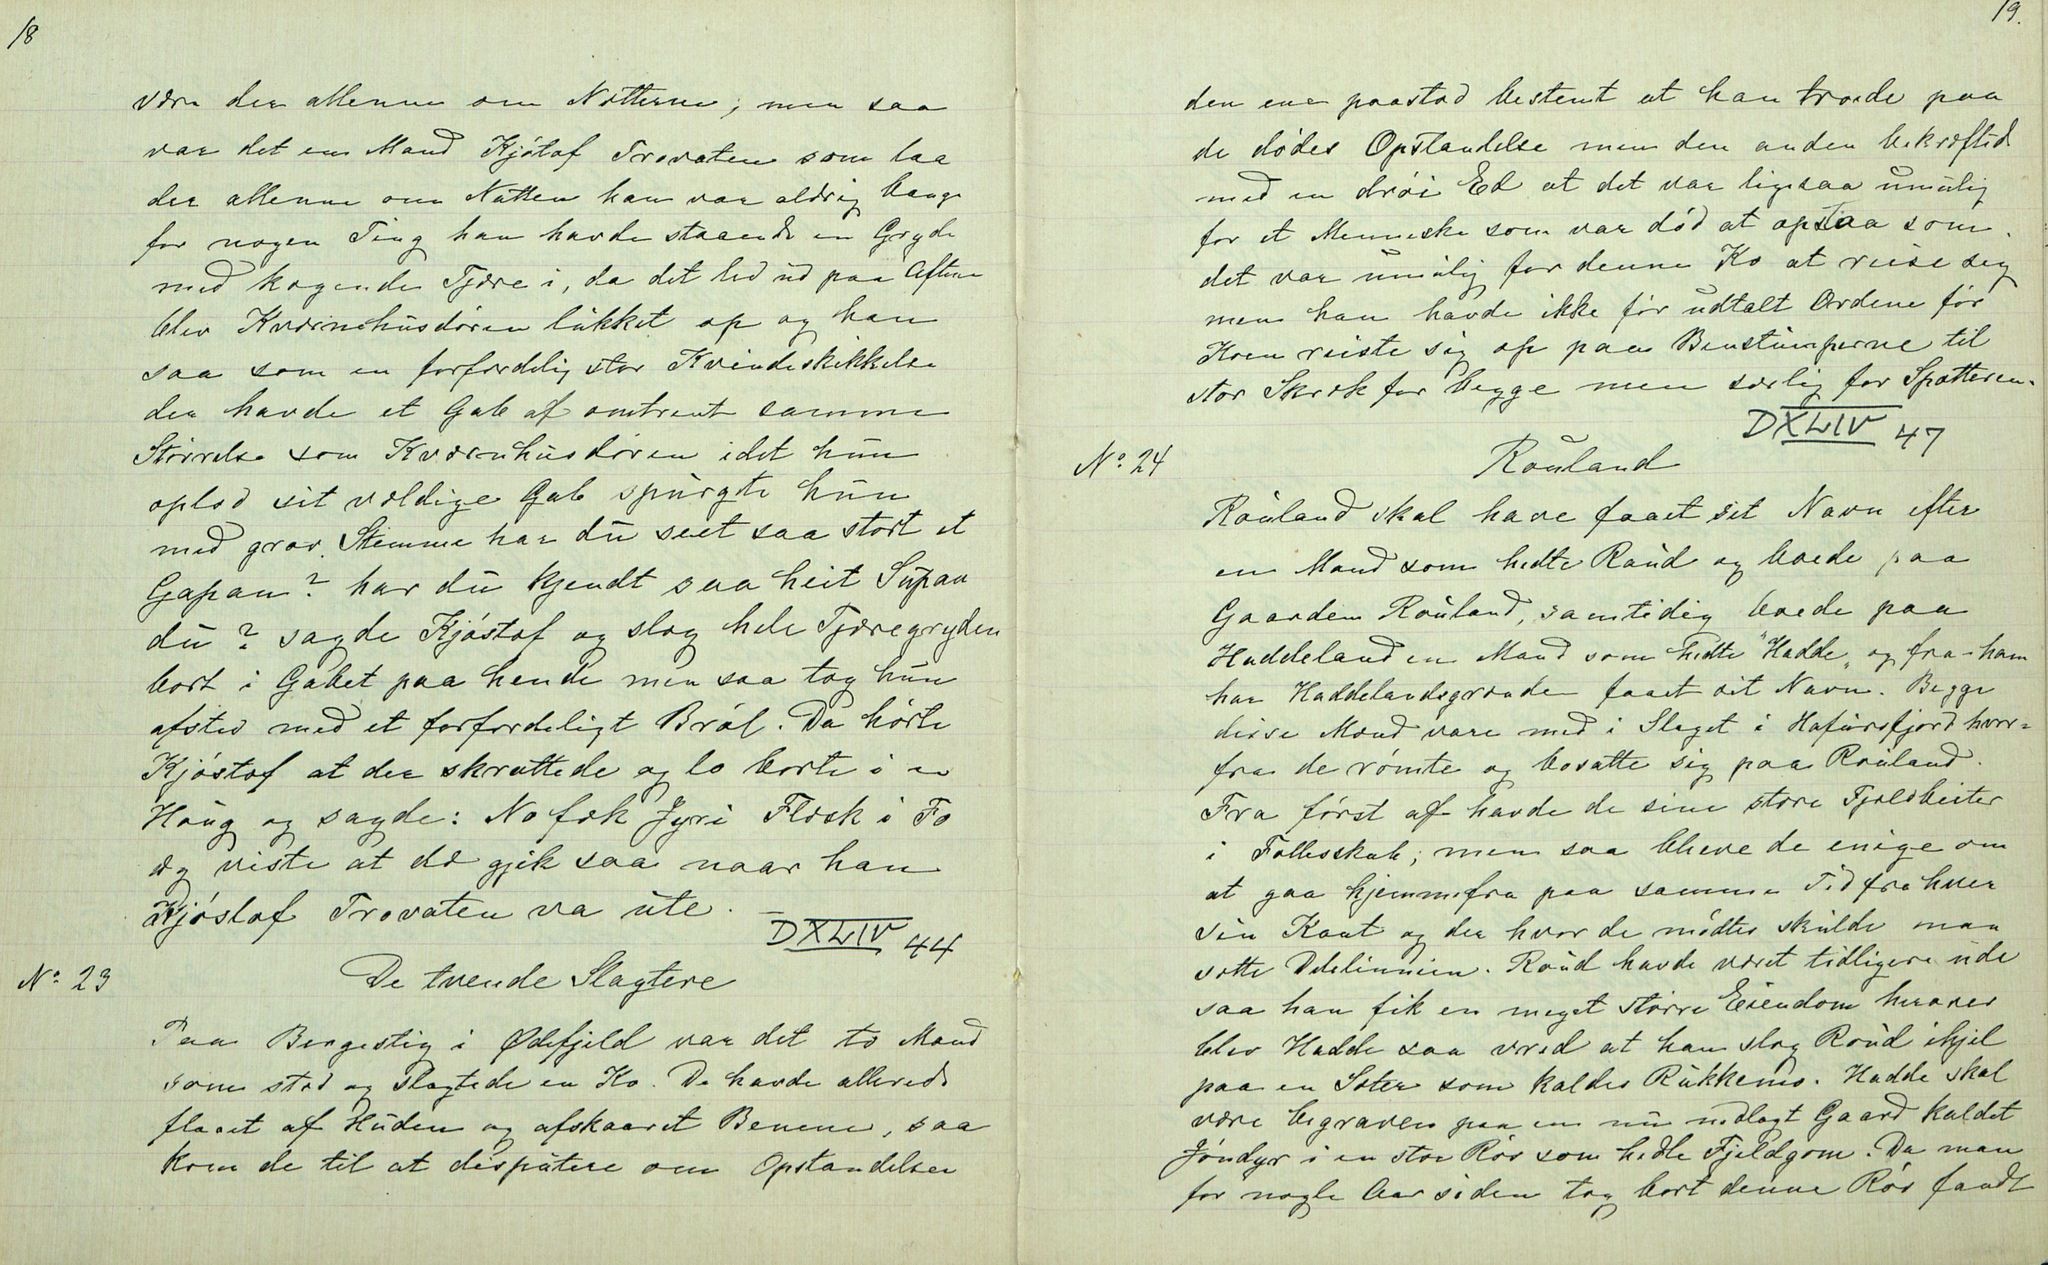 18
være der allenne om Nætterne; men saa
var det en Mand Kjøstof Trovaten som laa
der allenne om Natten han var aldrig bange
for nogen Ting han havde staaende en Gryde
med kogende Tjære i, da det led ud paa Aftene
blev Kværnehusdøren lukket op og han
saa som en forfærdelig stor Kvindeskikkelse
der havde et Gab af omtrent samme
Størrelse som Kværnhusdøren idet hun
oplod sit vældige Gab spurgte hun
med grov Stemme har du seet saa stort et
Gapan? har du kjendt saa heit Supan
du? sagde Kjøstof og slog hele Tjæregryden
bort i Gabet paa hende men saa tog hun
afsted med et forfærdeligt Brøl. Da hørte
Kjøstof at der skrattede og lo borte i en
Houg og sagde: No fæk Jyri Flæsk i Fo
æg viste at dæ gjik saa naar han
Kjøstof Trovaten va ute.
DXLIV 44
No. 23
De tvende Slagtere
Paa Bergestig i Ødefjeld var det to Mænd
som stod og slagtede en Ko. De havde allerede
flaaet af Huden og afskaaret Benene, saa
kom de til at disputere om Opstandelsen
19.
den ene paastod bestemt at han troede paa
de dødes Opstandelse men den anden bekræftede
med en drøi Ed at det var ligesaa umulig
for et Menneske som var død at opstaa som
det var umulig for denne Ko at reise seg
men han havde ikke før udtalt Ordene før
Koen reiste sig op paa Benstumperne til
stor Skræk for begge men særlig for Spotteren.
DXLIV 47
No. 24
Rouland
Rouland skal have faaet sit Navn efter
en Mand som hedte Roud og boede paa
Gaarden Rouland, samtidig boede paa
Haddeland en Mand som hedte "Hadde" og fra ham
har Haddelandsgrænden faaet sit Navn. Begge
disse Mænd vare med i Slaget i Hafursfjord hvor-
fra de rømte og bosatte sig paa Rouland.
Fra først af havde de sine store Fjeldbeiter
i Fællesskab; men saa bleve de enige om
at gaa hjemmefra paa samme Tid fra hver
sin Kant og der hvor de mødtes skulde man
sætte Delelinnien. Roud havde været tidligere ude
saa han fik en meget større Eiendom herover
blev Hadde saa vred at han slog Roud ihjel
paa en Sæter som kaldes Rukkemo. Hadde skal
være begraven paa en nu nedlagt Gaard kaldet
Jøndyr i en stor Røs som hedte Fjeldgom. Da man
for nogle Aar siden tog bort denne Røs fandt